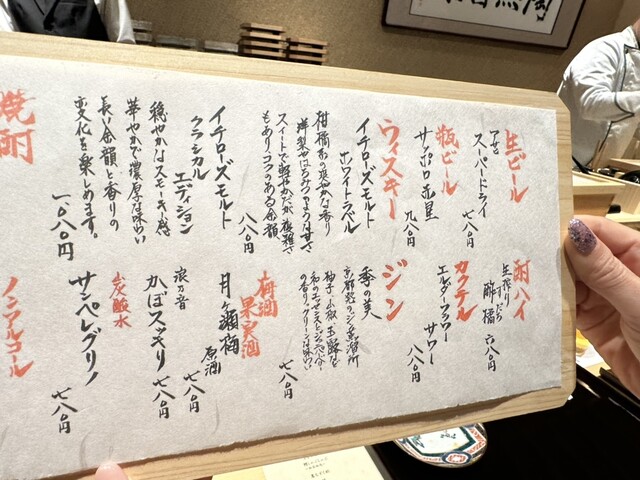 生ビール
アサヒ
スーパードライ
七八〇円
瓶ビール
サッポロ赤星
九八〇円
ウィスキー
イチローズモルト
ホワイトラベル
柑橘系の爽やかな香り
洋梨やはちみつのような甘さ
スイートで軽やかだが複雑さ
もありコクのある余韻
八八〇円
イチローズモルト
クラシカル
エディション
穏やかなスモーキー感
華やかで濃厚な味わい
長い余韻と香りの
変化を楽しめます。
一、〇八〇円
焼酎
酎ハイ
生搾り
すだち
酢橘
六八〇円
カクテル
エルダーフラワー
サワー
八八〇円
ジン
季の美
京都乾のジン蒸留所
柚子・山椒・玉露など
和のエッセンス
の香りグリーンな味わい
七八〇円
梅酒
果実酒
月ヶ瀬梅
原酒
七八〇円
浪の音
かぼスッキリ
七八〇円
炭酸水
サンペレグリノ
七八〇円
ノンアルコール